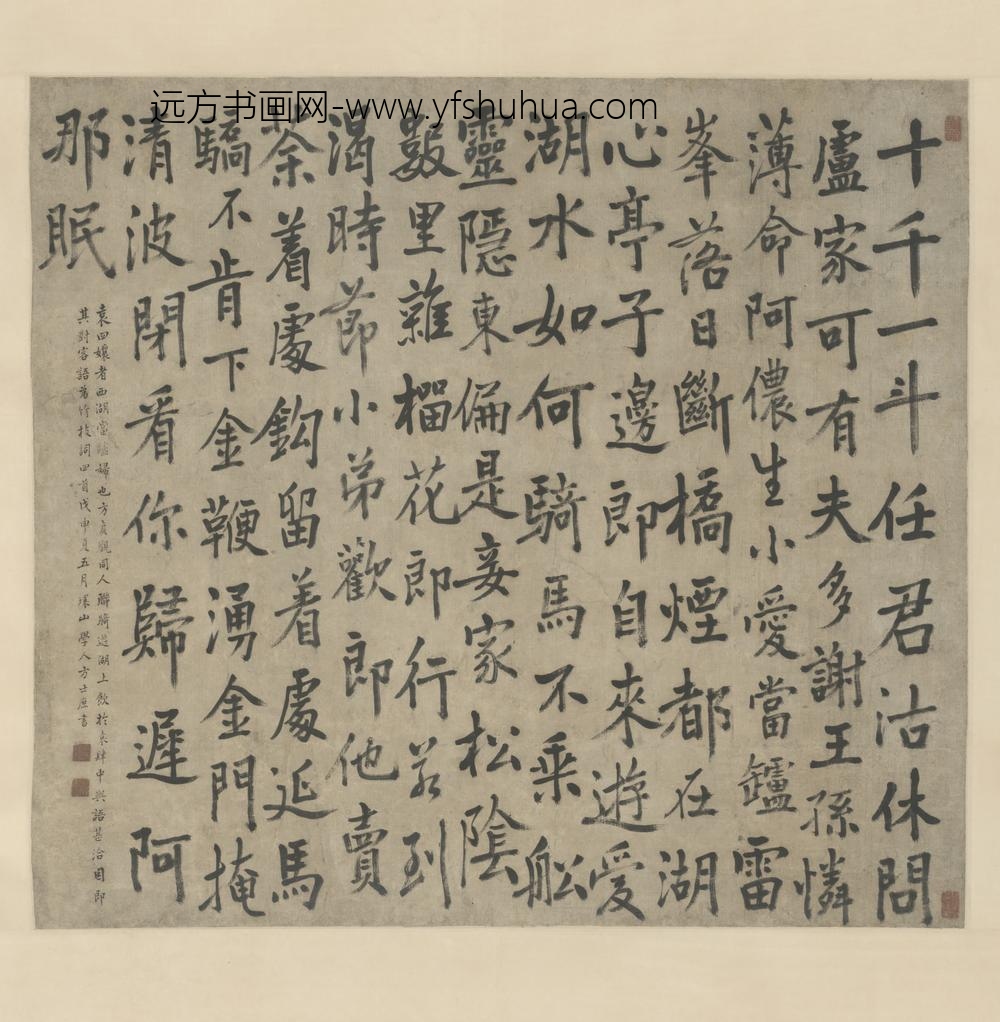 远方书画网-www.yfshuhua.com
十千一斗任君沽休問
盧家可有夫多謝王孫憐
薄命阿儂生小愛當鑪雷
峯落日斷橋煙都在湖
心亭子邊郎自來遊愛
湖水如何騎馬不乗舩
靈隱東偏是妾家松陰
數里雜榴花郎行若到
渴時節小弟歡郎他賣
茶着處鈎留着處延馬
驕不肯下金鞭湧金門掩
清波閉看你歸遲阿
那眠
袁四孃者西湖當壚婦也方貞觀同人聯騎遊湖上飲於袁肆中與語甚洽因即
其對客語為竹枝詞四首戊申夏五月環山學人方士庶書